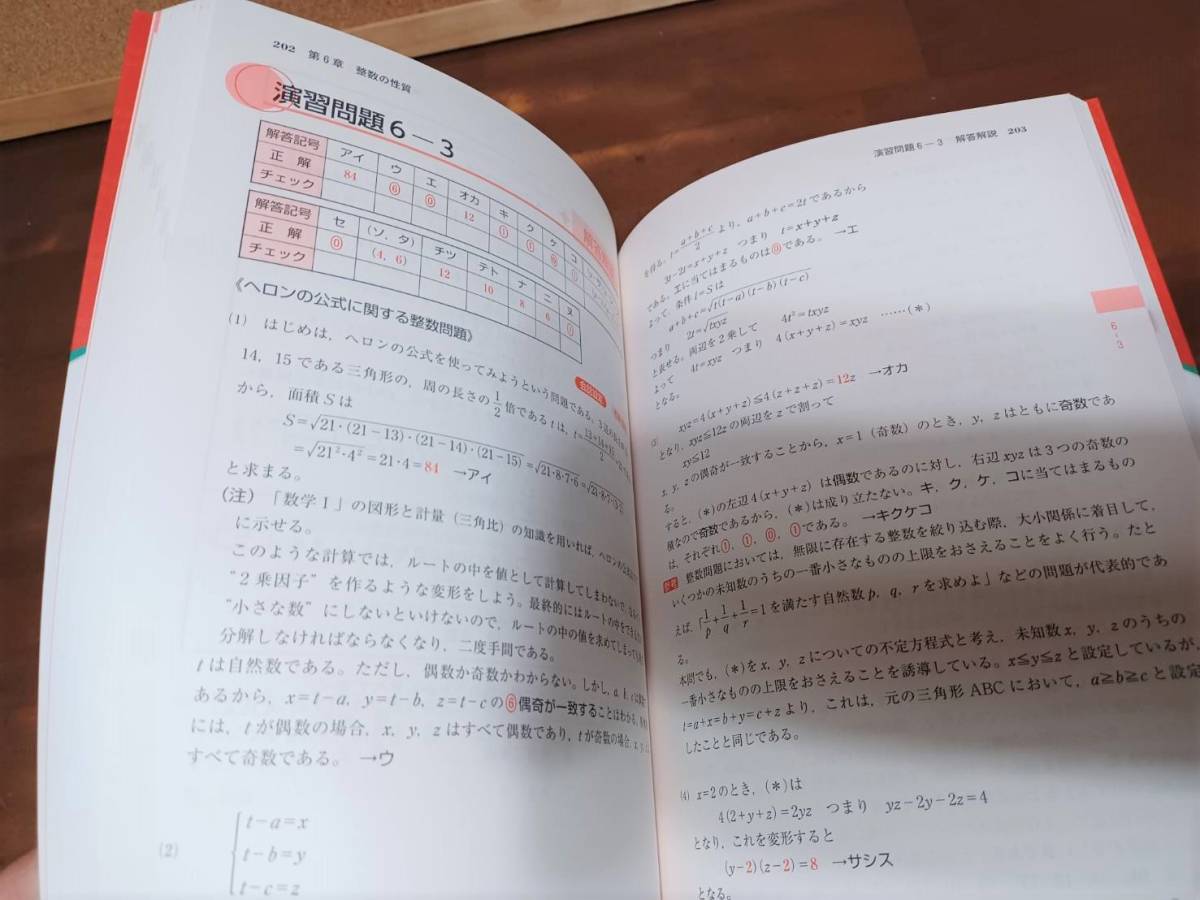 202 第6章 整数の性質
演習問題6－3
解答記号 アイ ウ エ オカ キ ク ケ コ
正解 84 ⑥ ⓪ 12 ① ① ⓪ ①
チェック
解答記号 セ (ソ，タ) チツ テト ナ ニ ヌ
正解 ⓪ (4, 6) 12 10 8 6 ①
チェック
《ヘロンの公式に関する整数問題》
(1) はじめは，ヘロンの公式を使ってみようという問題である。
14，15である三角形の，周の長さの1/2倍であるtは，
から，面積Sは
S=√21・(21−13)・(21−14)・(21−15)=√21・8・7・6
=√21²・4²=21・4=84 →アイ
と求まる。
(注) 「数学Ⅰ」の図形と計量（三角比）の知識を用いれば，
に示せる。
このような計算では，ルートの中を値として計算してしまわないで，
“2乗因子”を作るような変形をしよう。最終的にはルートの中を
“小さな数”にしないといけないので，ルートの中の値を求めてしまっ
分解しなければならなくなり，二度手間である。
tは自然数である。ただし，偶数か奇数かわからない。しかし，
あるから，x=t−a，y=t−b，z=t−cの⑥偶奇が一致することはわかる。
には，tが偶数の場合，x，y，zはすべて偶数であり，tが奇数の場合，x，
すべて奇数である。 →ウ
(2) t−a=x
t−b=y
t−c=z
演習問題6－3 解答解説 203
を得る。t=(a+b+c)/2より，a+b+c=2tであるから
3t−2t=x+y+z つまり t=x+y+z
である。エに当てはまるものは⓪である。 →エ
よって，条件l=Sは
a+b+c=√t(t−a)(t−b)(t−c)
つまり 2t=√txyz
と表せる。両辺を2乗して 4t²=txyz
よって 4t=xyz つまり 4(x+y+z)=xyz ……(＊)
となる。
xyz=4(x+y+z)≦4(z+z+z)=12z →オカ
となり，xyz≦12zの両辺をzで割って
xy≦12
x，y，zの偶奇が一致することから，x=1（奇数）のとき，y，zはともに奇数であ
る。
すると，(＊)の左辺4(x+y+z)は偶数であるのに対し，右辺xyzは3つの奇数の
積なので奇数であるから，(＊)は成り立たない。キ，ク，ケ，コに当てはまるもの
は，それぞれ①，①，⓪，①である。 →キクケコ
参考 整数問題においては，無限に存在する整数を絞り込む際，大小関係に着目して，
いくつかの未知数のうちの一番小さなものの上限をおさえることをよく行う。たと
えば，「1/p+1/q+1/r=1を満たす自然数p，q，rを求めよ」などの問題が代表的であ
る。
本問でも，(＊)をx，y，zについての不定方程式と考え，未知数x，y，zのうちの
一番小さなものの上限をおさえることを誘導している。x≦y≦zと設定しているが，
t=a+x=b+y=c+zより，これは，元の三角形ABCにおいて，a≧b≧cと設定
したことと同じである。
(4) x=2のとき，(＊)は
4(2+y+z)=2yz つまり yz−2y−2z=4
となり，これを変形すると
(y−2)(z−2)=8 →サシス
となる。
6-3